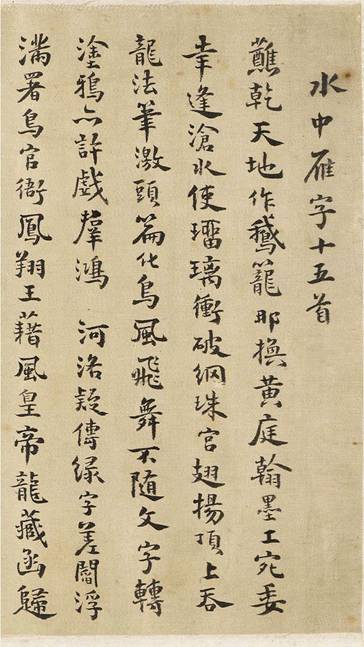 水中雁字十五首
蘸乾天地作鵝籠那換黃庭翰墨工宛委
幸逢滄水使瑠璃衝破網珠宮翅揚頂上吞
龍法筆激頭篇化鳥風飛舞不隨文字轉
塗鴉亦許戲羣鴻　河洛疑傳綠字差闇浮
滿署鳥官銜鳳翔王藉風皇帝龍藏函歸